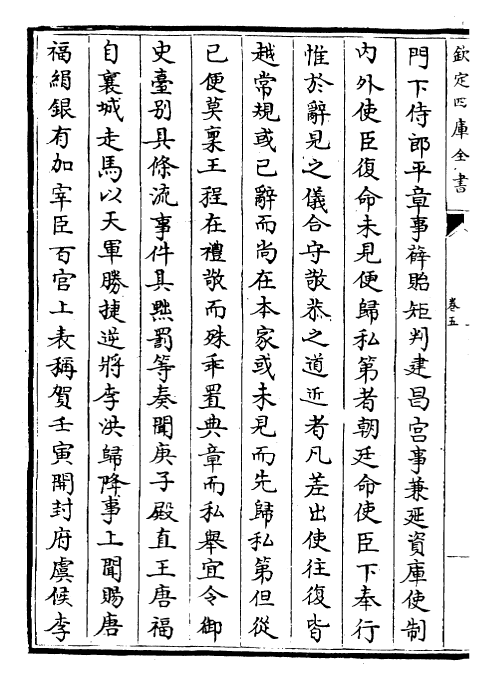 欽定四庫全書
卷五
門下侍郎平章事薛貽矩判建昌宫事兼延資庫使制
内外使臣復命未見便歸私第者朝廷命使臣下奉行
惟於辭見之儀合守敬恭之道近者凡差出使往復皆
越常規或已辭而尚在本家或未見而先歸私第但從
已便莫禀王程在禮敬而殊乖置典章而私舉宜令御
史臺别具條流事件具黜罰等奏聞庚子殿直王唐福
自襄城走馬以天軍勝捷逆將李洪歸降事上聞賜唐
福絹銀有加宰臣百官上表稱賀壬寅開封府虞候李